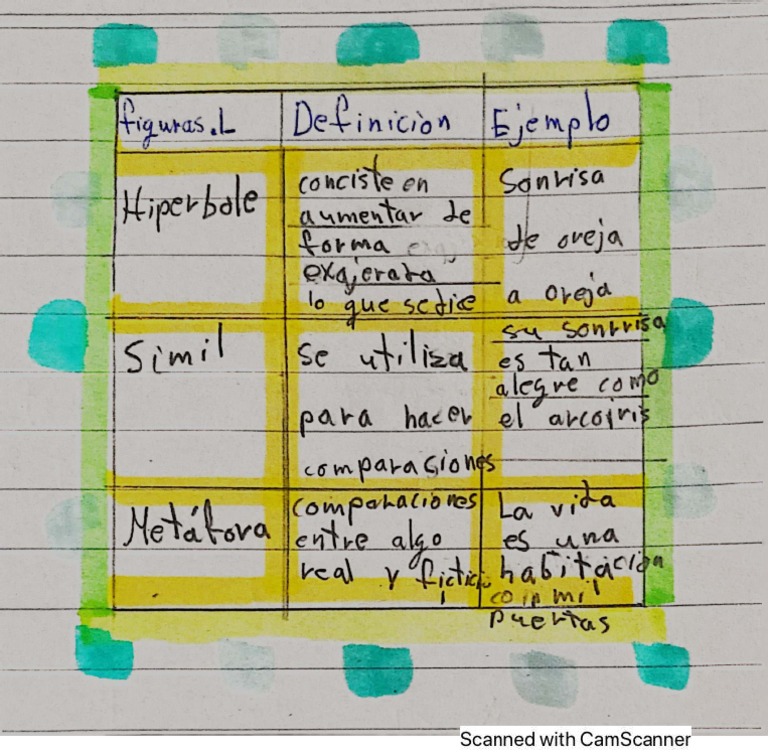 figuras.L Definicion Ejemplo
Hiperbole
conciste en
aumentar de
forma
exajerata
lo que se dice
Sonrisa
de oreja
a oreja
Simil
se utiliza
para hacer
comparaciones
su sonrrisa
es tan
alegre como
el arcoiris
Metáfora
comparaciones
entre algo
real y fictici
La vida
es una
habitación
con mil
puertas
Scanned with CamScanner